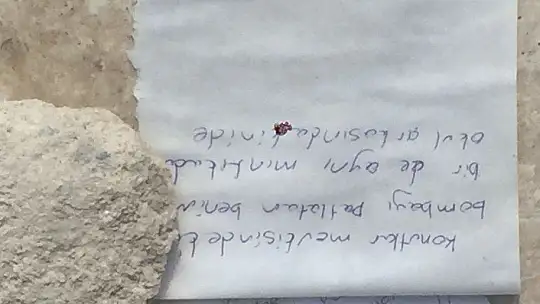 Konutkar mevkisinde
bombayı Patlatan benim
bir de aynı mıntıkada
okul arkasındakinide